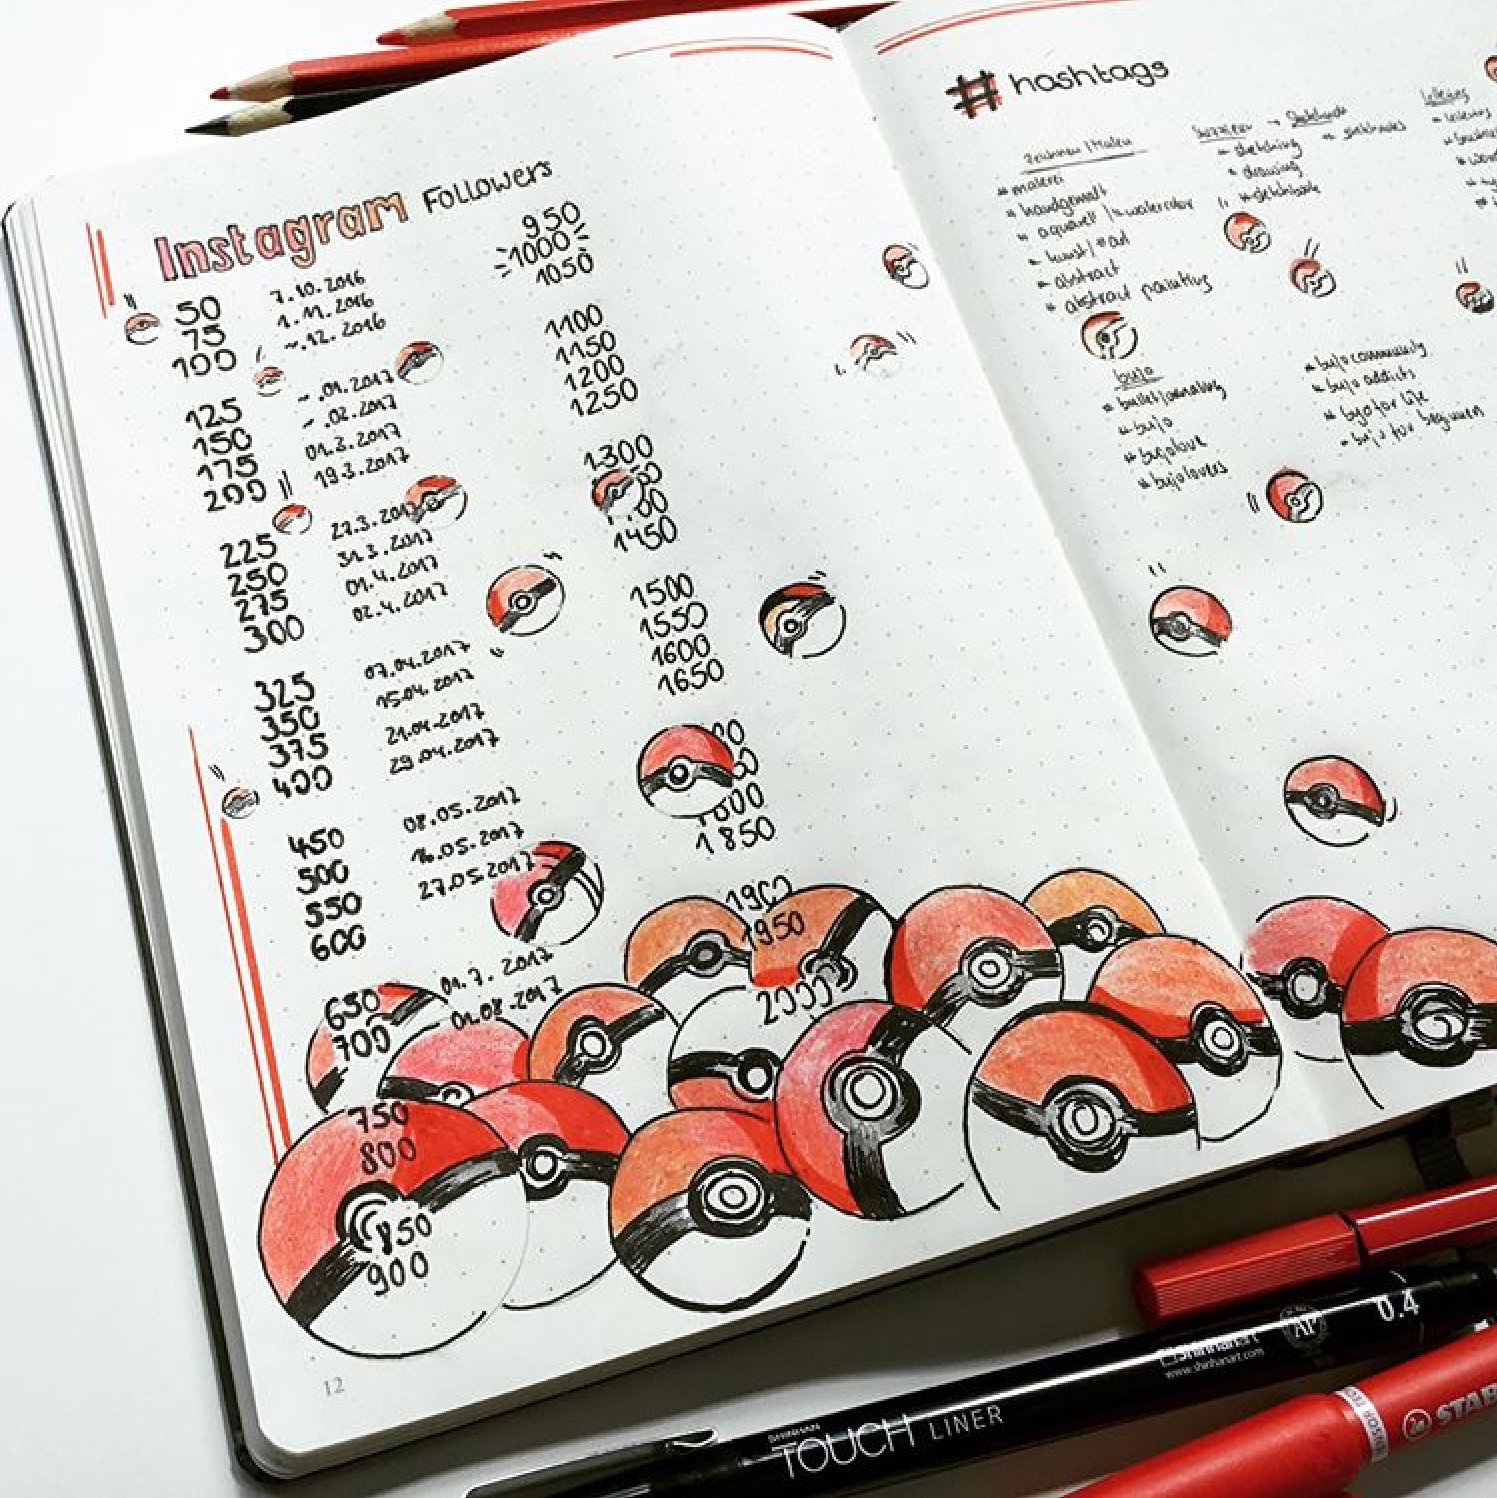 Instagram Followers
50 7.10.2016
75 1.11.2016
100 ~.12.2016
125 ~.01.2017
150 ~.02.2017
175 01.3.2017
200 19.3.2017
225 27.3.2017
250 31.3.2017
275 01.4.2017
300 02.4.2017
325 07.04.2017
350 15.04.2017
375 21.04.2017
400 29.04.2017
450 08.05.2017
500 16.05.2017
550 27.05.2017
600
650 01.7.2017
700 01.08.2017
750
800
850
900
950
1000
1050
1100
1150
1200
1250
1300
1450
1500
1550
1600
1650
1850
1950
2000
12
# hashtags
Zeichnen / Malen
# malerei
# handgemalt
# aquarell / # watercolor
# kunst / # art
# abstract
# abstract painting
Skizzieren → Sketchnote
# sketching # sketchnotes
# drawing
# sketchbook
Lettering
bujo
# bulletjournaling
# bujo
# bujolove
# bujolovers
# bujocommunity
# bujo addicts
# bujo for life
# bujo for beginners
SHINHAN
TOUCH LINER
Shinhanart
www.shinhanart.com
AP
0.4
STAB